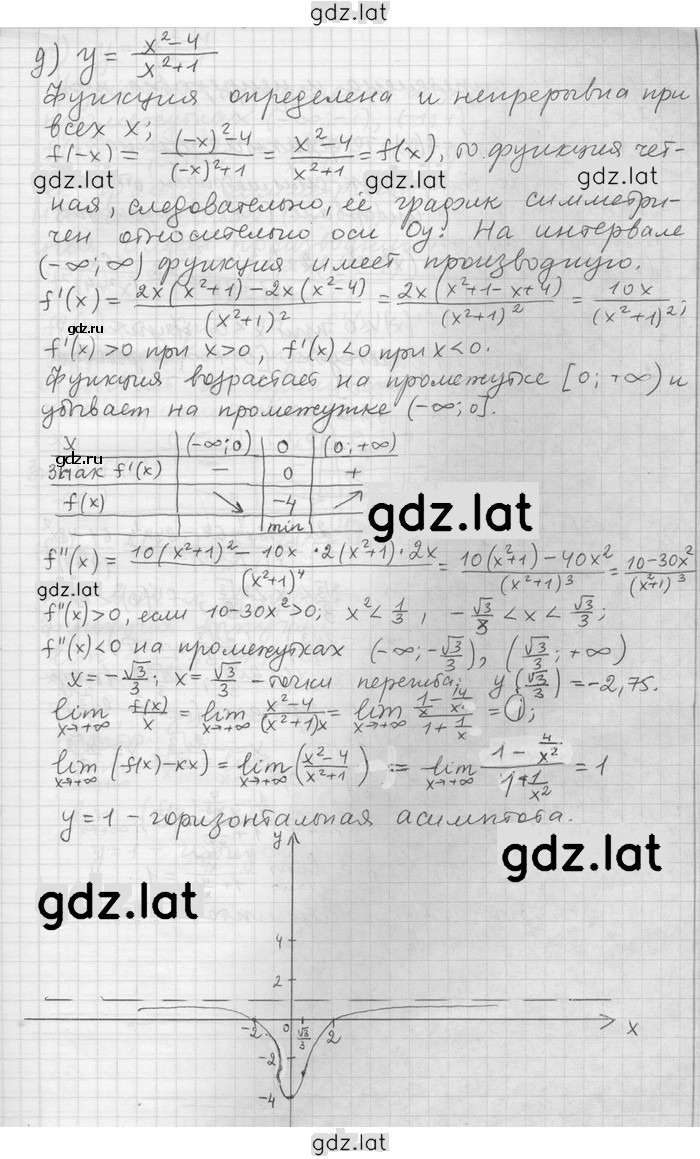 gdz.lat
д) y = (x²-4)/(x²+1)
Функция определена и непрерывна при
всех x;
f(-x) = ((-x)²-4)/((-x)²+1) = (x²-4)/(x²+1) = f(x), то функция чет-
gdz.lat gdz.lat
ная, следовательно, её график симметри-
чен относительно оси Oy. На интервале
(-∞; ∞) функция имеет производную.
f'(x) = (2x(x²+1)-2x(x²-4))/(x²+1)² = 2x(x²+1-x+4)/(x²+1)² = 10x/(x²+1)²;
gdz.lat
f'(x) >0 при x>0, f'(x) <0 при x<0.
Функция возрастает на промежутке [0; +∞) и
убывает на промежутке (-∞; 0].
x (-∞; 0) 0 (0; +∞)
gdz.lat
Знак f'(x) − 0 +
f(x) ↘ -4 ↗
min
gdz.lat
f''(x) = (10(x²+1)² - 10x · 2(x²+1) · 2x)/(x²+1)⁴ = (10(x²+1) - 40x²)/(x²+1)³ = (10-30x²)/(x²+1)³
gdz.lat
f''(x)>0, если 10-30x²>0; x²<1/3, -√3/3 < x < √3/3;
f''(x)<0 на промежутках (-∞; -√3/3), (√3/3; +∞)
x = -√3/3; x = √3/3 - точки перегиба; y(√3/3) = -2,75.
lim x→+∞ f(x)/x = lim x→+∞ (x²-4)/((x²+1)x) = lim x→+∞ = 0;
lim x→+∞ (f(x)-kx) = lim x→+∞ ((x²-4)/(x²+1)) = lim x→+∞ (1 - 4/x²)/(1+1/x²) = 1
y = 1 - горизонтальная асимптота.
gdz.lat
y
gdz.lat
4
2
-2 0 √3/3 2 x
-2
-4
gdz.lat